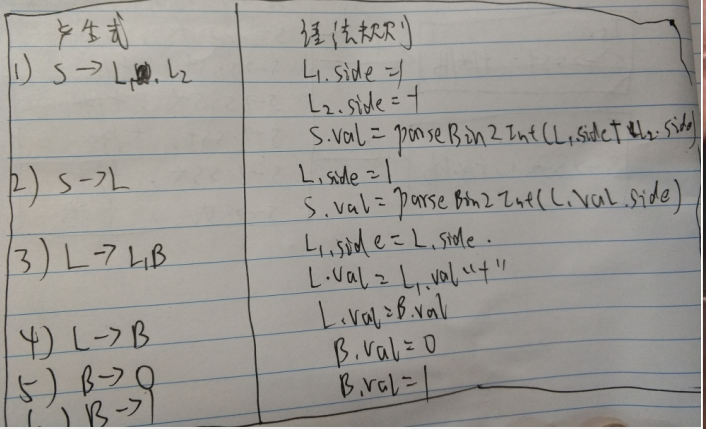 产生式
语法规则
1) S → L1 . L2
L1.side = 1
L2.side = -1
S.val = parseBin2Int(L1.side + L2.side)
2) S → L
L.side = 1
S.val = parseBin2Int(L.val.side)
3) L → L1B
L1.side = L.side.
L.val = L1.val "+"
L.val = B.val
4) L → B
B.val = 0
5) B → 0
B.val = 1
) B → 1